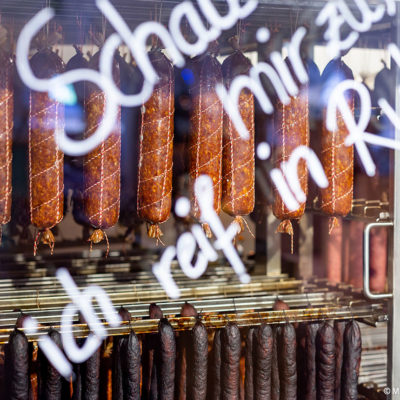 Schau
mir zu,
wie
ich reif
in Ru
© M